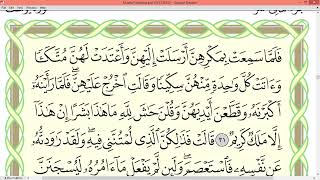 فَلَمَّا سَمِعَتْ بِمَكْرِهِنَّ أَرْسَلَتْ إِلَيْهِنَّ وَأَعْتَدَتْ لَهُنَّ مُتَّكَـًٔا
وَءَاتَتْ كُلَّ وَٰحِدَةٍ مِّنْهُنَّ سِكِّينًا وَقَالَتِ ٱخْرُجْ عَلَيْهِنَّ ۖ فَلَمَّا رَأَيْنَهُۥٓ
أَكْبَرْنَهُۥ وَقَطَّعْنَ أَيْدِيَهُنَّ وَقُلْنَ حَٰشَ لِلَّهِ مَا هَٰذَا بَشَرًا إِنْ هَٰذَآ
إِلَّا مَلَكٌ كَرِيمٌ ٣١ قَالَتْ فَذَٰلِكُنَّ ٱلَّذِى لُمْتُنَّنِى فِيهِ ۖ وَلَقَدْ رَٰوَدتُّهُۥ
عَن نَّفْسِهِۦ فَٱسْتَعْصَمَ ۖ وَلَئِن لَّمْ يَفْعَلْ مَآ ءَامُرُهُۥ لَيُسْجَنَنَّ